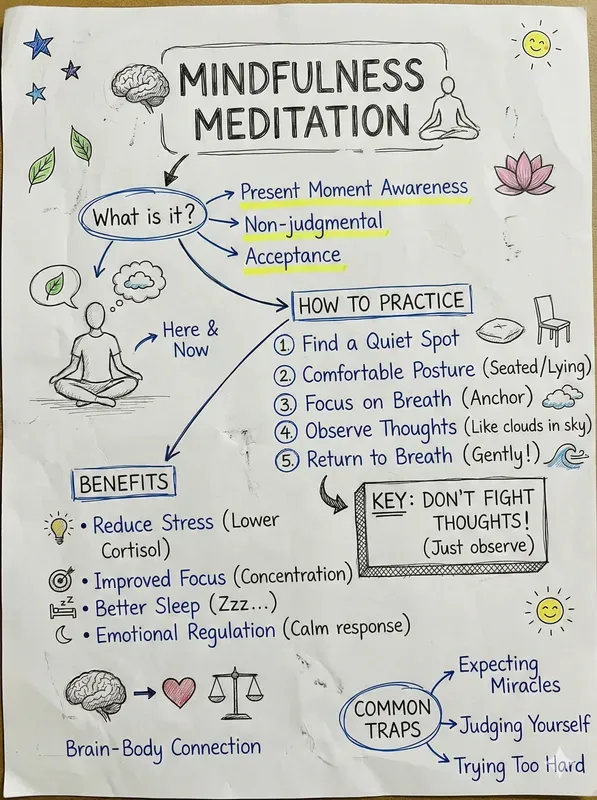 MINDFULNESS
MEDITATION
What is it?
Present Moment Awareness
Non-judgmental
Acceptance
Here &
Now
HOW TO PRACTICE
1. Find a Quiet Spot
2. Comfortable Posture (Seated/Lying)
3. Focus on Breath (Anchor)
4. Observe Thoughts (Like clouds in sky)
5. Return to Breath (Gently!)
KEY: DON'T FIGHT
THOUGHTS!
(Just observe)
BENEFITS
• Reduce Stress (Lower
Cortisol)
• Improved Focus (Concentration)
zz
• Better Sleep (Zzz...)
• Emotional Regulation (Calm response)
Brain-Body Connection
COMMON
TRAPS
Expecting
Miracles
Judging Yourself
Trying Too Hard